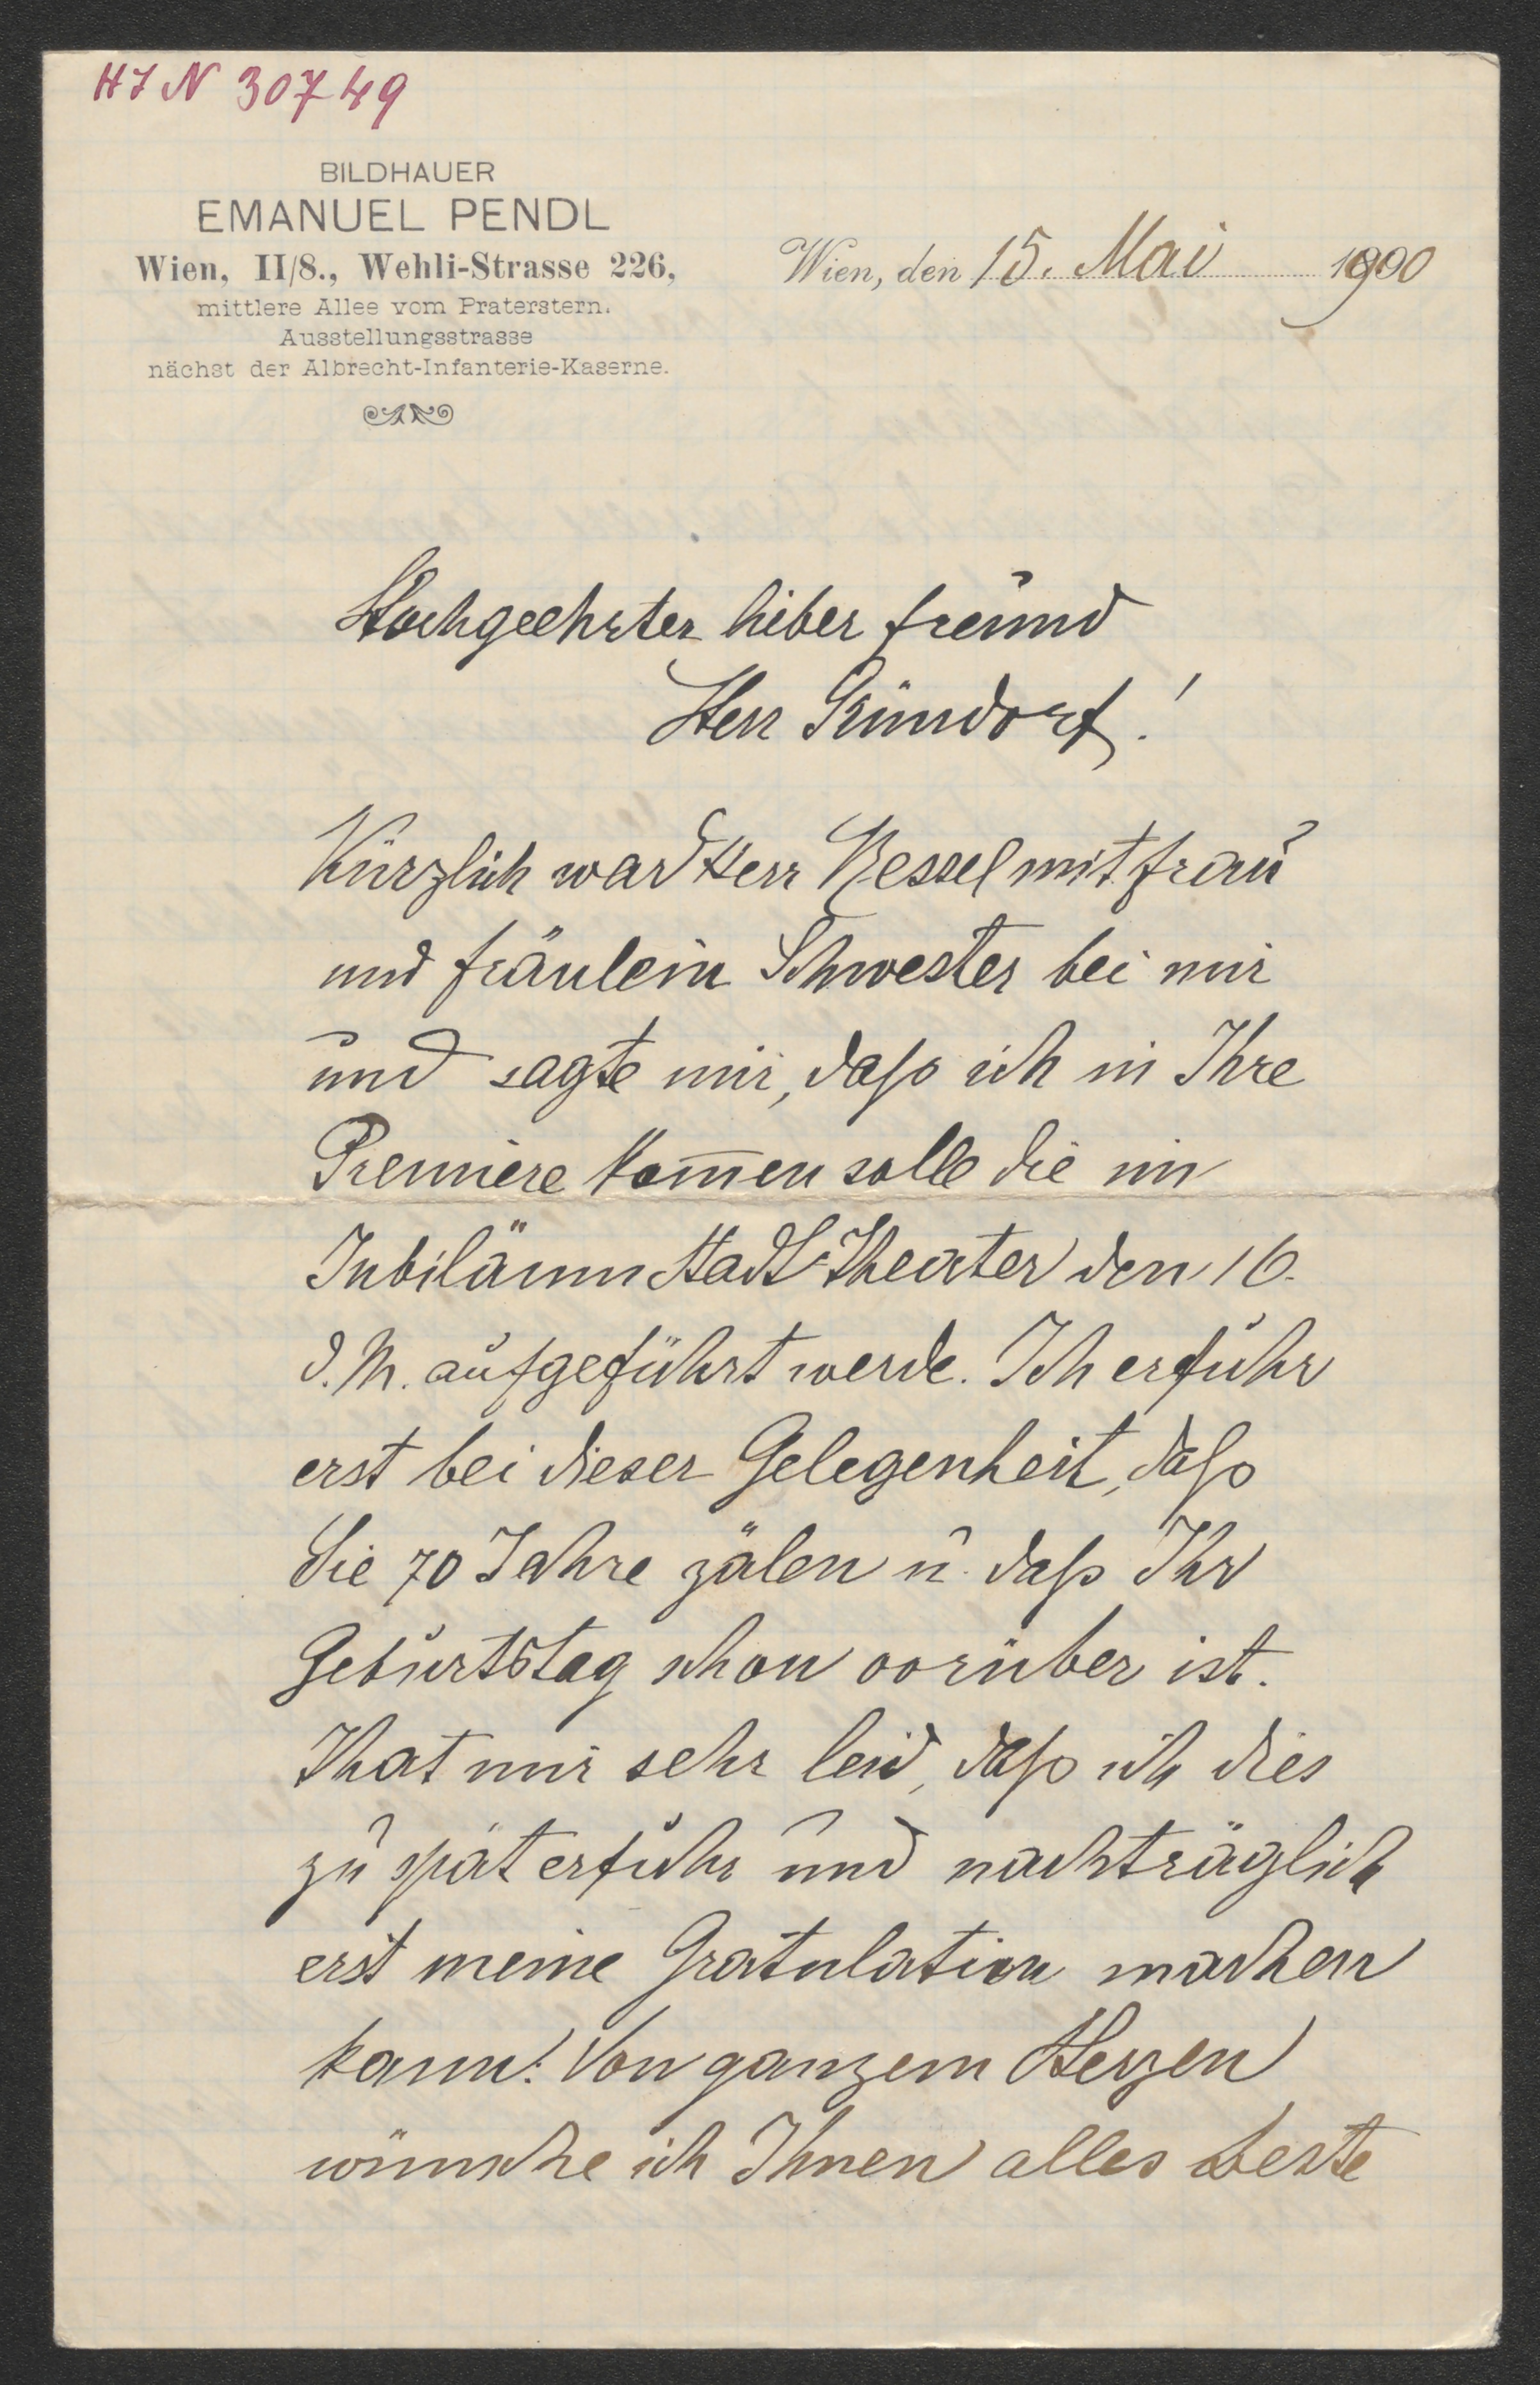 HJN 30749
BILDHAUER
EMANUEL PENDL
Wien, II/8., Wehli-Strasse 226,
mittlere Allee vom Praterstern.
Ausstellungsstrasse
nächst der Albrecht-Infanterie-Kaserne.
Wien, den 15. Mai 1900
Hochgeehrter lieber Freund
Herr Gründorf!
Kürzlich war Herr Kessel mit Frau
und Fräulein Schwester bei mir
und sagte mir, daß ich in Ihre
Premiere kom̄en solle die im
Jubiläum Stadt-Theater den 16.
d. M. aufgeführt werde. Ich erfuhr
erst bei dieser Gelegenheit, daß
Sie 70 Jahre zälen u. daß Ihr
Geburtstag schon vorüber ist.
That mir sehr leid, daß ich dies
zu spät erfuhr und nachträglich
erst meine Gratulation machen
kann! Von ganzem Herzen
wünsche ich Ihnen alles beste